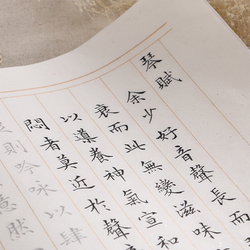 琴賦
余少好音聲長而
衰而此無變滋味
以導養神氣宣和
悶者莫近於聲音
則吟咏以肆
意然